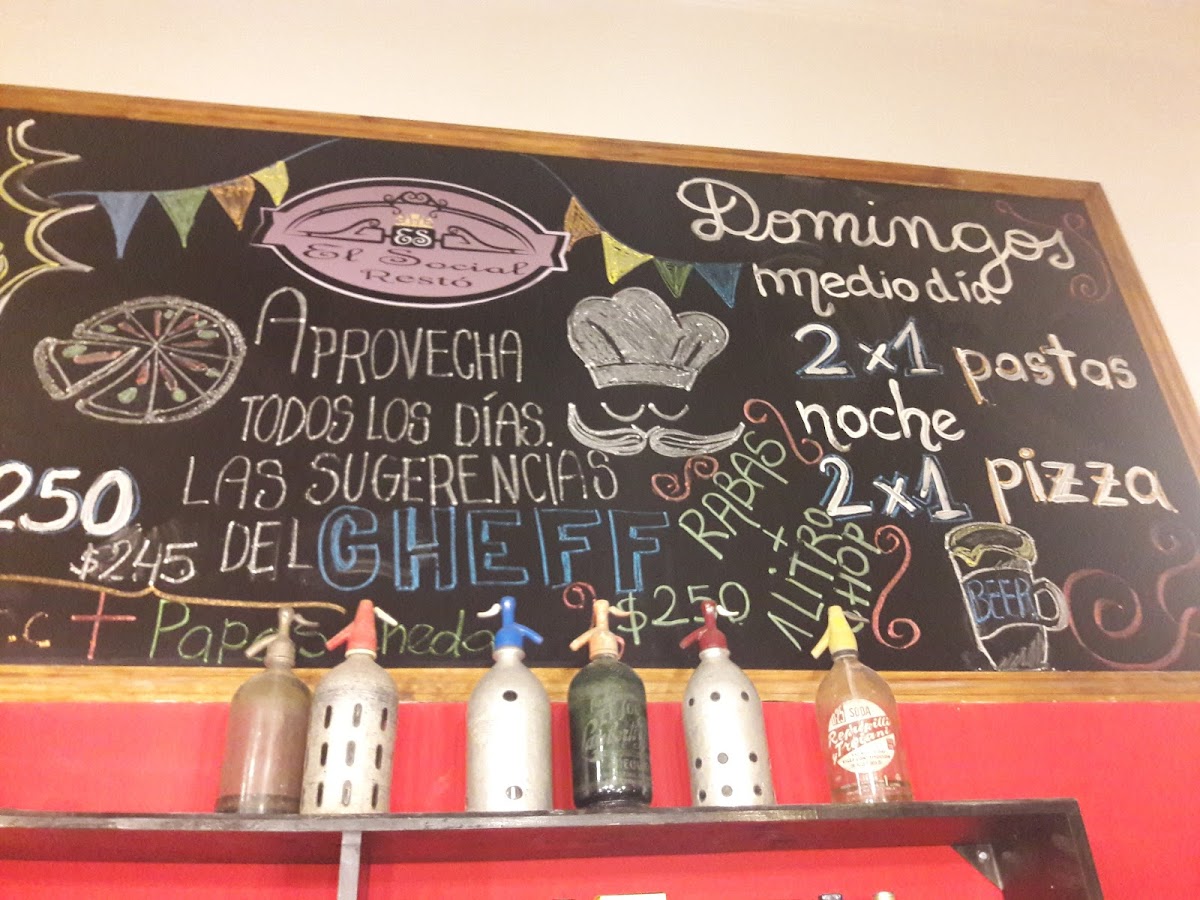 ES
El Social
Restó
APROVECHA
TODOS LOS DÍAS.
LAS SUGERENCIAS
DEL CHEFF
250
$245
+ Papas
RABAS
+
1 LITRO
CHOP
$250
Domingos
mediodía
2x1 pastas
noche
2x1 pizza
BEER
SODA